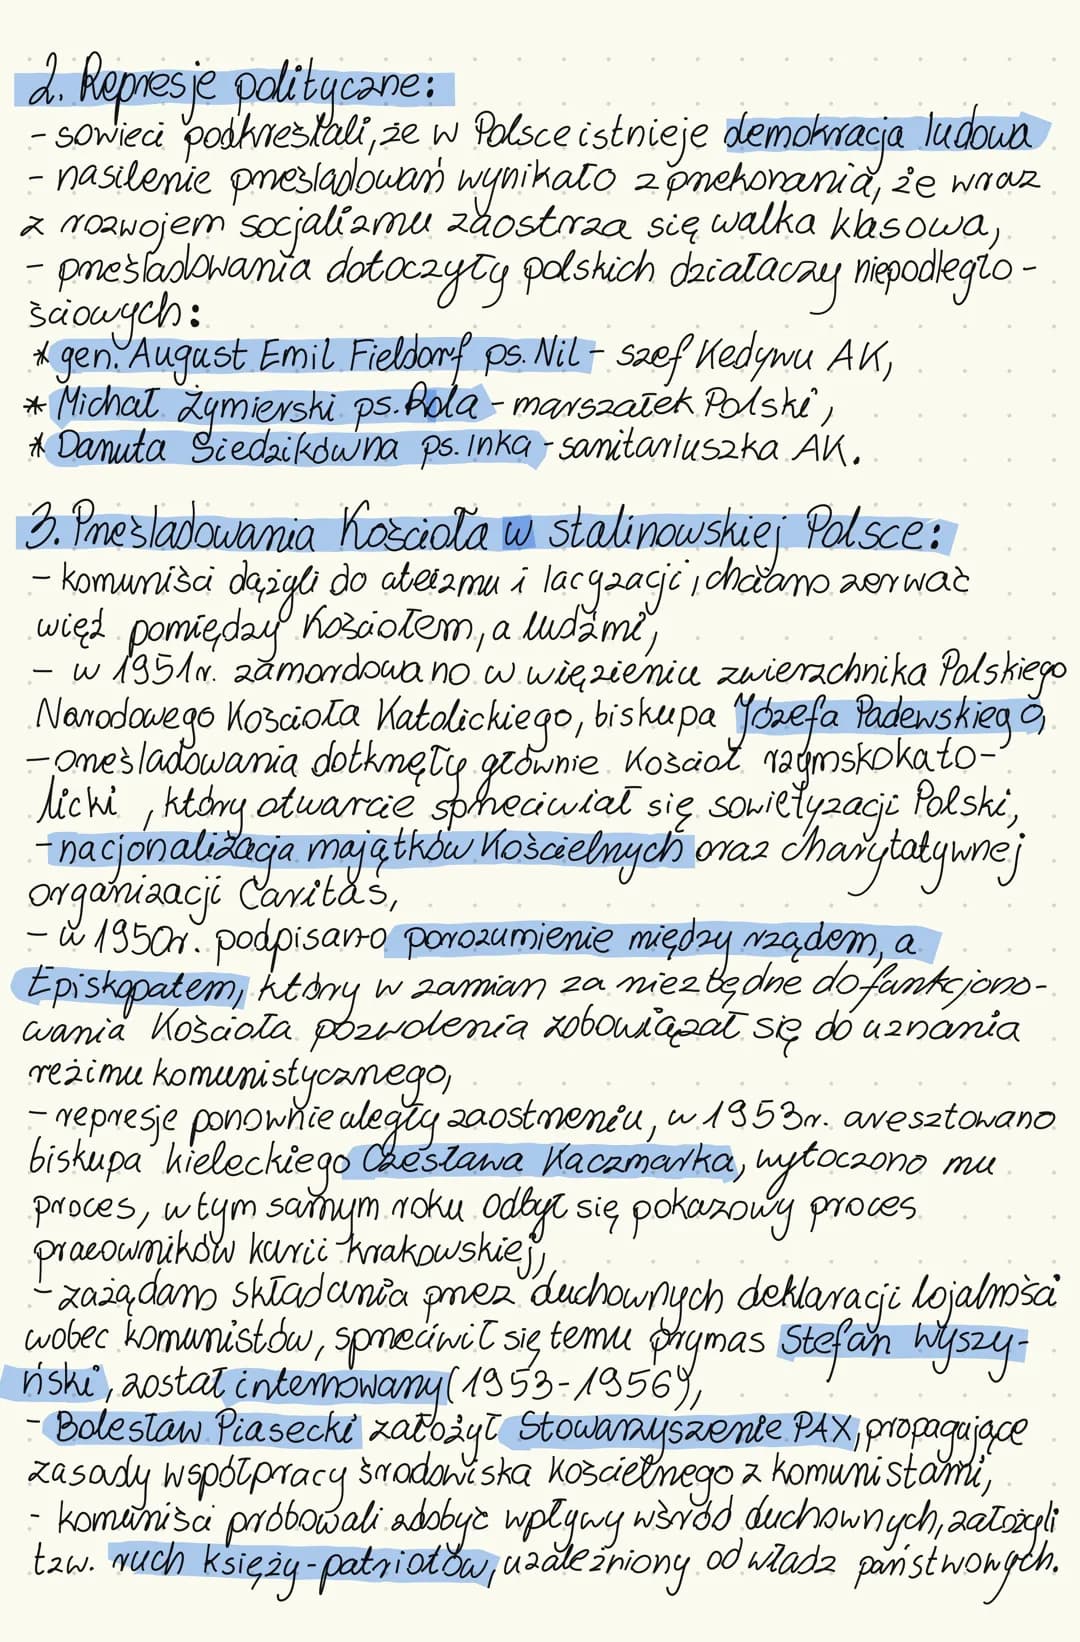 2. Represje polityczne:
- sowieci podkreślali, że w Polsce istnieje demokracja ludowa
- nasilenie prześladowań wynikało z przekonania, że wraz
z rozwojem socjalizmu zaostrza się walka klasowa,
- prześladowania dotoczyły polskich działaczy niepodległo-
ściowych:
* gen. August Emil Fieldorf ps. Nil - szef Kedywu AK,
* Michał Żymierski ps. Rola - marszałek Polski,
* Danuta Siedzikówna ps. Inka - sanitariuszka AK.
3. Prześladowania Kościoła w stalinowskiej Polsce:
- komuniści dążyli do ateizmu i lacyzacji, chciano zerwać
więź pomiędzy Kościołem, a ludźmi,
- w 1951r. zamordowano w więzieniu zwierzchnika Polskiego
Narodowego Kościoła Katolickiego, biskupa Józefa Padewskiego,
- prześladowania dotknęły głównie Kościół rzymskokato-
licki, który otwarcie sprzeciwiał się sowietyzacji Polski,
- nacjonalizacja majątków Kościelnych oraz charytatywnej
organizacji Caritas,
- w 1950r. podpisano porozumienie między rządem, a
Episkopatem, który w zamian za niezbędne do funkcjono-
wania Kościoła pozwolenia zobowiązał się do uznania
reżimu komunistycznego,
- represje ponownie uległy zaostrzeniu, w 1953r. aresztowano
biskupa kieleckiego Czesława Kaczmarka, wytoczono mu
proces, w tym samym roku odbył się pokazowy proces
pracowników kurii krakowskiej,
- zażądano składania przez duchownych deklaracji lojalności
wobec komunistów, sprzeciwił się temu prymas Stefan Wyszy-
ński, został internowany (1953-1956),
- Bolesław Piasecki założył Stowarzyszenie PAX, propagujące
zasady współpracy środowiska Kościelnego z komunistami,
- komuniści próbowali zdobyć wpływy wśród duchownych, założyli
tzw. ruch księży-patriotów, uzależniony od władz państwowych.